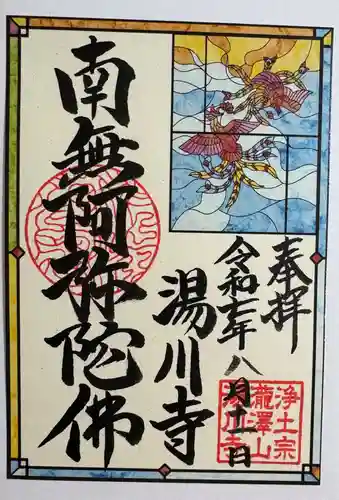 奉拝
令和七年八月十一日
南無阿弥陀佛
湯川寺
浄土宗
瀧澤山
湯川寺